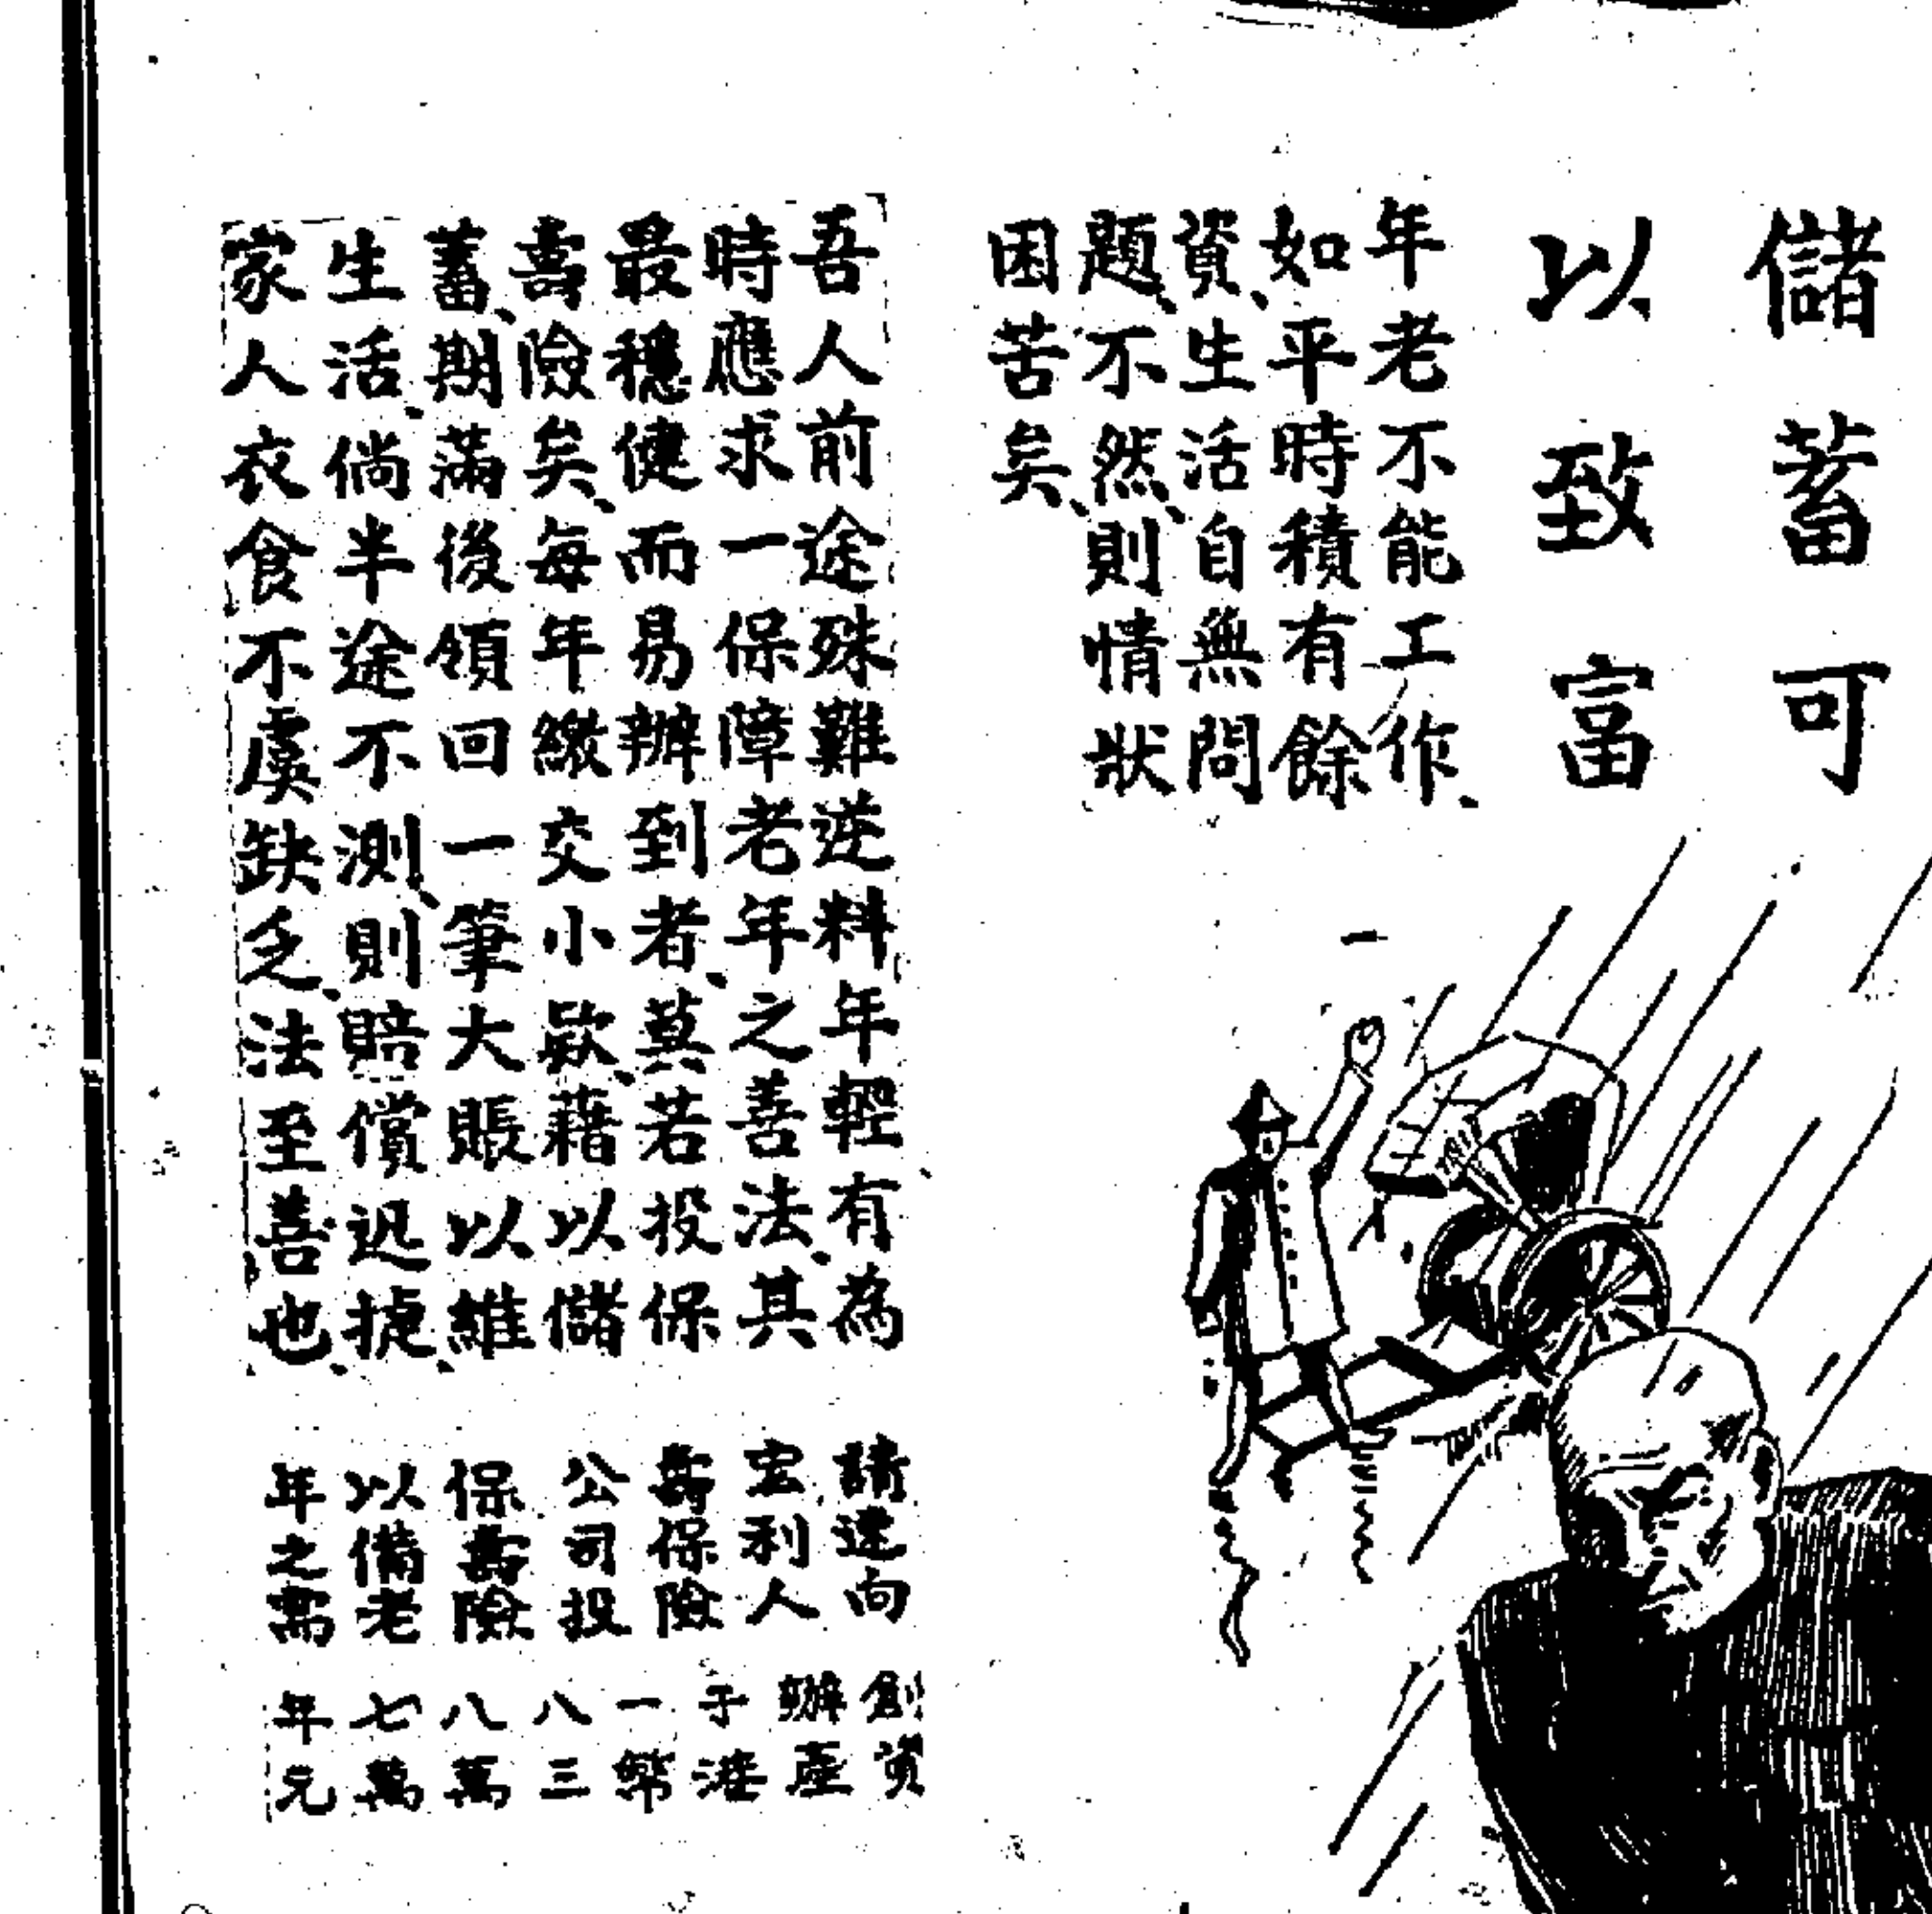 儲蓄可
以致富
年老不能工作、
如平時積有餘
資、生活自無問
題、不然、則情狀
困苦矣、
吾人前途殊難逆料年輕有為
時應求一保障老年之善法、其
最穩健而易辦到者、莫若投保
壽險矣、每年繳交小欵、藉以儲
蓄、期滿後領回一筆大賬以維
生活、倘半途不測、則賠償迅捷、
家人衣食不虞缺乏、法至善也、
請速向
宏利人
壽保險
公司投
保壽險
以備老
年之需
創辦于一八八七年
資產港幣三萬萬元